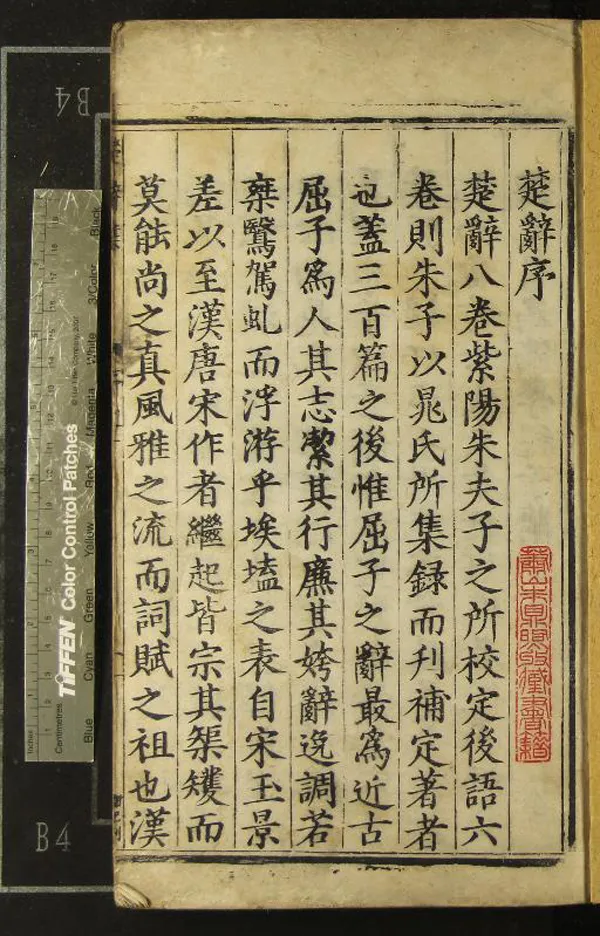 楚辭序
楚辭八卷紫陽朱夫子之所校定後語六
卷則朱子以晁氏所集録而刋補定著者
也蓋三百篇之後惟屈子之辭最爲近古
屈子爲人其志㓗其行廉其姱辭逸調若
椉鷖駕虬而浮游乎埃壒之表自宋玉景
差以至漢唐宋作者繼起皆宗其榘矱而
莫能尚之真風雅之流而詞賦之祖也漢
蕭山朱鼎煦收藏書籍
B4
B4
TIFFEN Color Control Patches
© The Tiffen Company, 2007
Inches
Centimetres
Blue
Cyan
Green
Yellow
Red
Magenta
White
3/Color
Black